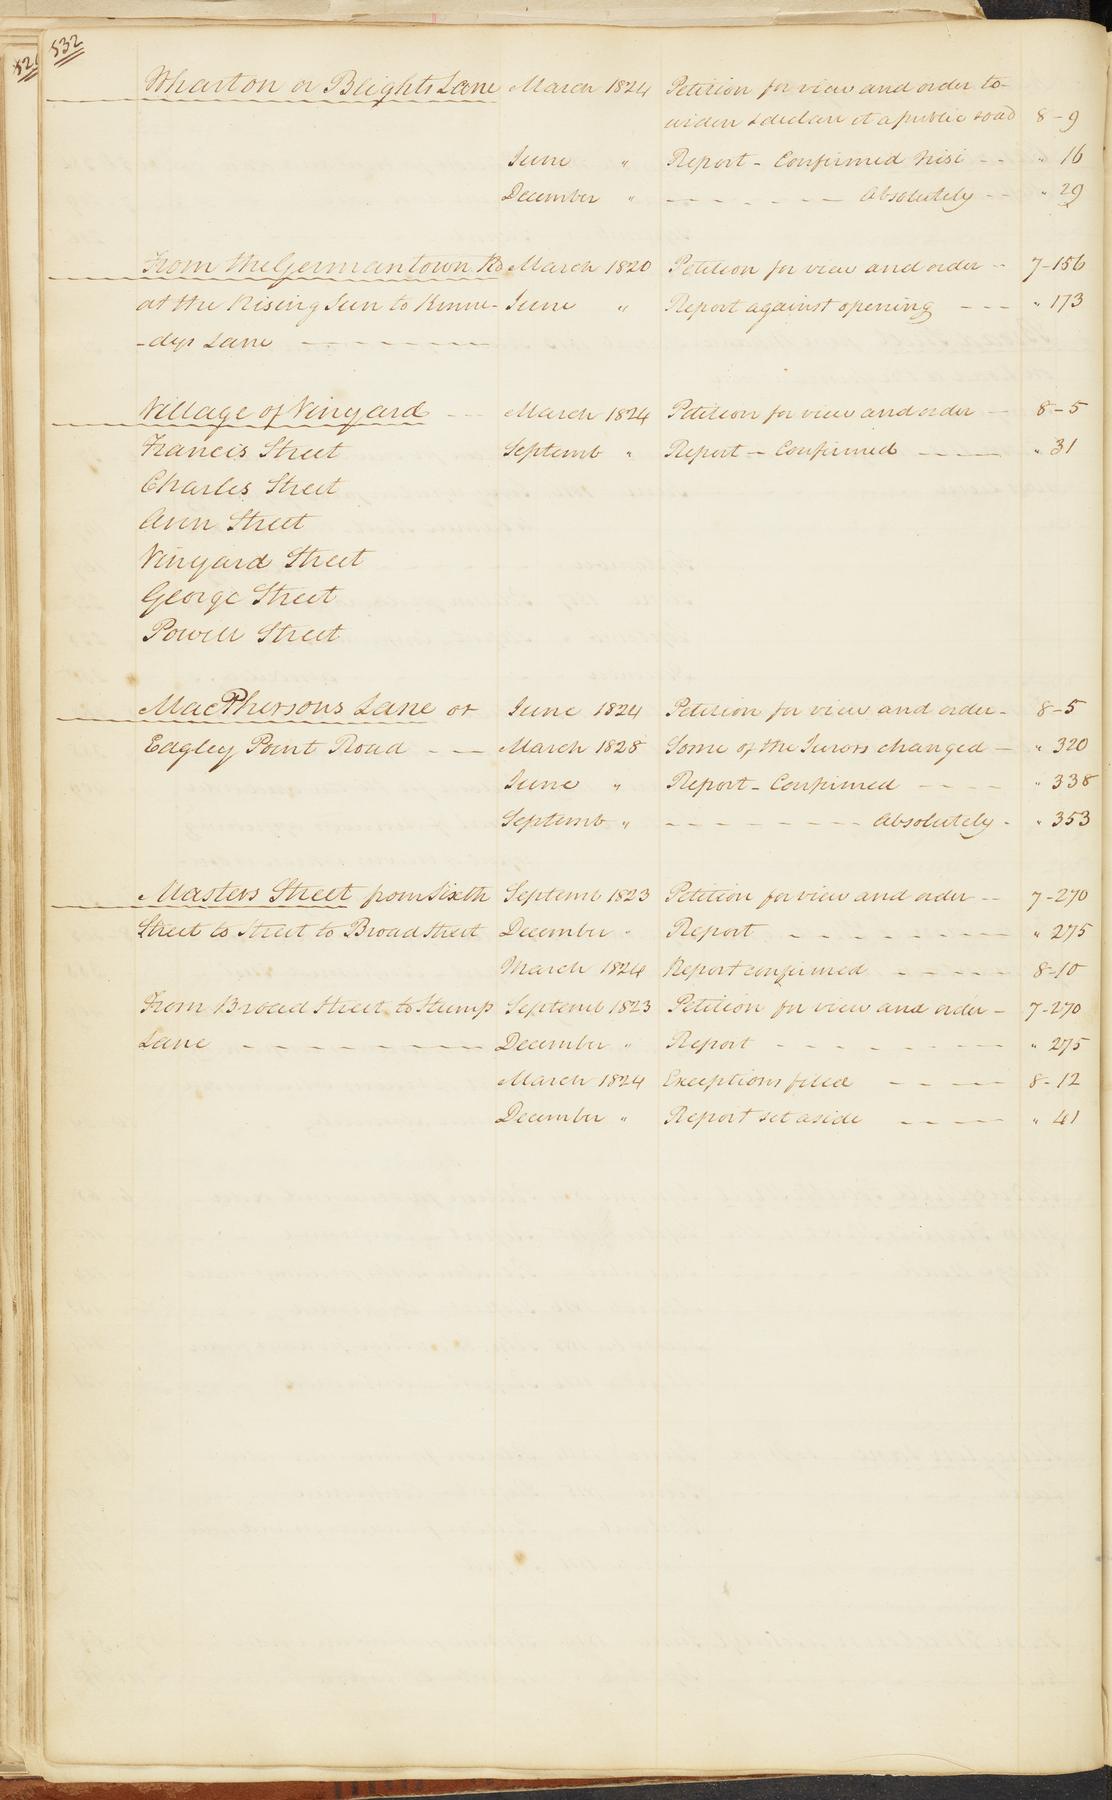 532
Wharton or Blights Lane March 1824 Petition for view and order to
widen & declare it a public road 8-9
June " Report - Confirmed Nisi - - " 16
December " - - - - - - - Absolutely - - " 29
From the Germantown Rd March 1820 Petition for view and order - - 7-156
at the Rising Sun to Kenne- June " Report against opening - - - " 173
-dys Lane - - - - - - -
Village of Vinyard - - March 1824 Petition for view and order - 8-5
Francis Street Septemb " Report - Confirmed - - - - " 31
Charles Street
Ann Street
Vinyard Street
George Street
Powell Street
MacPhersons Lane or June 1824 Petition for view and order - 8-5
Edgley Point Road - - March 1828 Some of the Jurors changed - " 320
June " Report - Confirmed - - - - " 338
Septemb " - - - - - - - - - Absolutely - " 353
Masters Street from Sixth Septemb 1823 Petition for view and order - - 7-270
Street to Street to Broad Street December " Report - - - - - - - " 275
March 1824 Report confirmed - - - - 8-10
From Broad Street to Stump Septemb 1823 Petition for view and order - 7-270
Lane - - - - - - - - - December " Report - - - - - - - - " 275
March 1824 Exceptions filed - - - - 8-12
December " Report set aside - - - - " 41